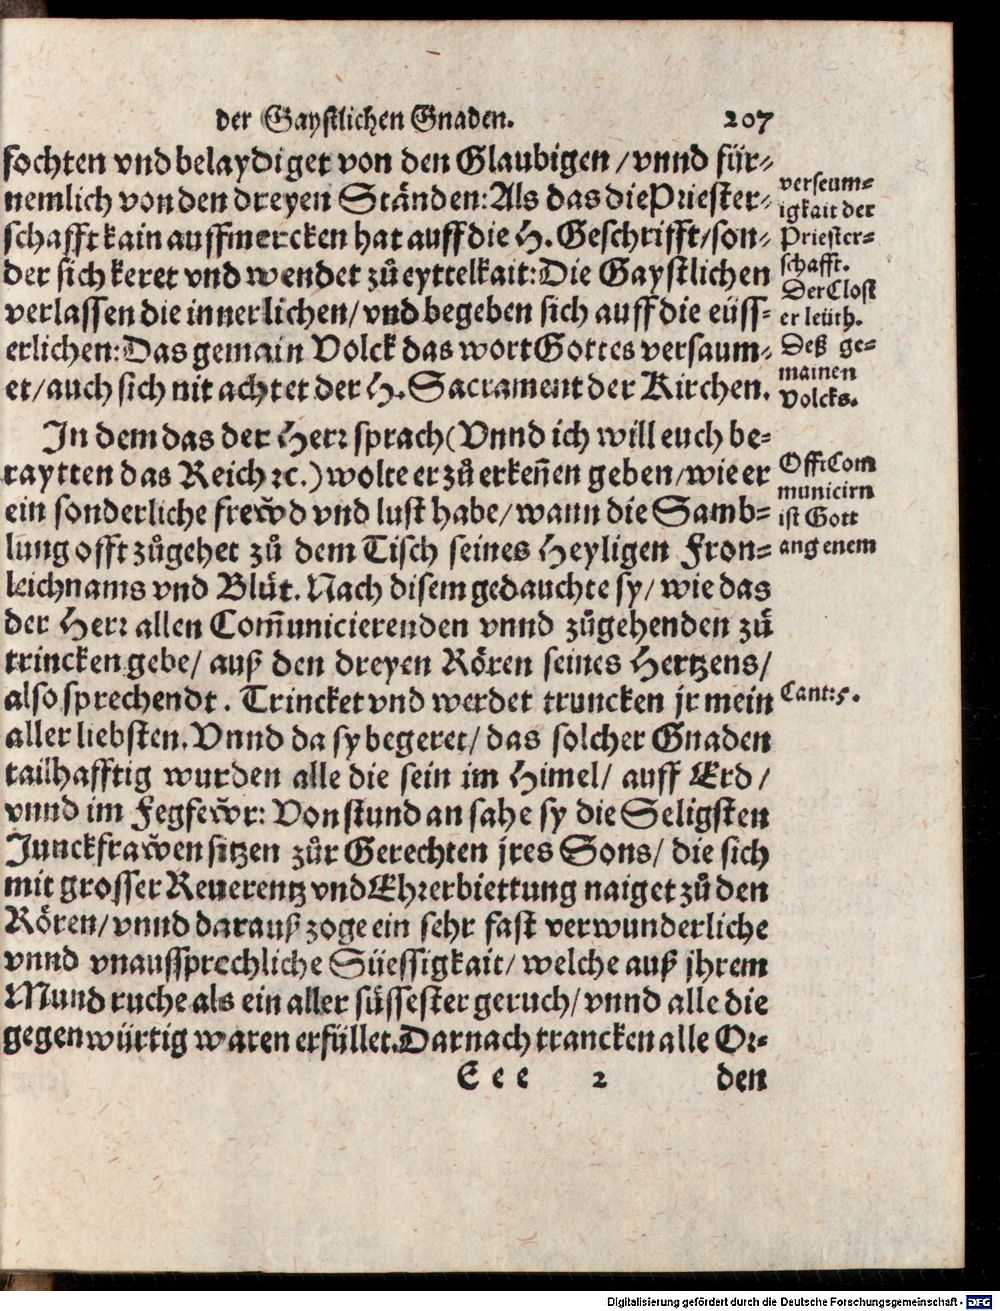 der Gaystlichen Gnaden. 207
fochten vnd belaydiget von den Glaubigen / vnnd für-
nemlich von den dreyen Ständen: Als das die Priester-
schafft kain auffmercken hat auff die H. Geschrifft / son-
der sich keret vnd wendet zů eyttelkait: Die Gaystlichen
verlassen die innerlichen / vnd begeben sich auff die eüss-
erlichen: Das gemain Volck das wort Gottes versaum-
et / auch sich nit achtet der H. Sacrament der Kirchen.
verseum-
igkait der
Priester-
schafft.
Der Clost
er leüth.
Deß ge-
mainen
Volcks.
In dem das der Herr sprach (Vnnd ich will euch be-
raytten das Reich ꝛc.) wolte er zů erkeñen geben / wie er
ein sonderliche frew̆d vnd lust habe / wann die Samb-
lung offt zůgehet zů dem Tisch seines Heyligen Fron-
leichnams vnd Blůt. Nach disem gedauchte sy / wie das
der Herr allen Com̃unicierenden vnnd zůgehenden zů
trincken gebe / auß den dreyen Rören seines Hertzens /
also sprechendt. Trincket vnd werdet truncken jr mein
aller liebsten. Vnnd da sy begeret / das solcher Gnaden
tailhafftig wurden alle die sein im Himel / auff Erd /
vnnd im Fegfew̆r: Von stund an sahe sy die Seligsten
Junckfraw̆en sitzen zůr Gerechten jres Sons / die sich
mit grosser Reuerentz vnd Ehrerbiettung naiget zů den
Rören / vnnd darauß zoge ein sehr fast verwunderliche
vnnd vnaussprechliche Süessigkait / welche auß jhrem
Mund ruche als ein aller süssester geruch / vnnd alle die
gegenwürtig waren erfüllet. Darnach trancken alle Or-
Offt Com
municirn
ist Gott
angenem
Cant: 5.
E e e 2 den
Digitalisierung gefördert durch die Deutsche Forschungsgemeinschaft - DFG